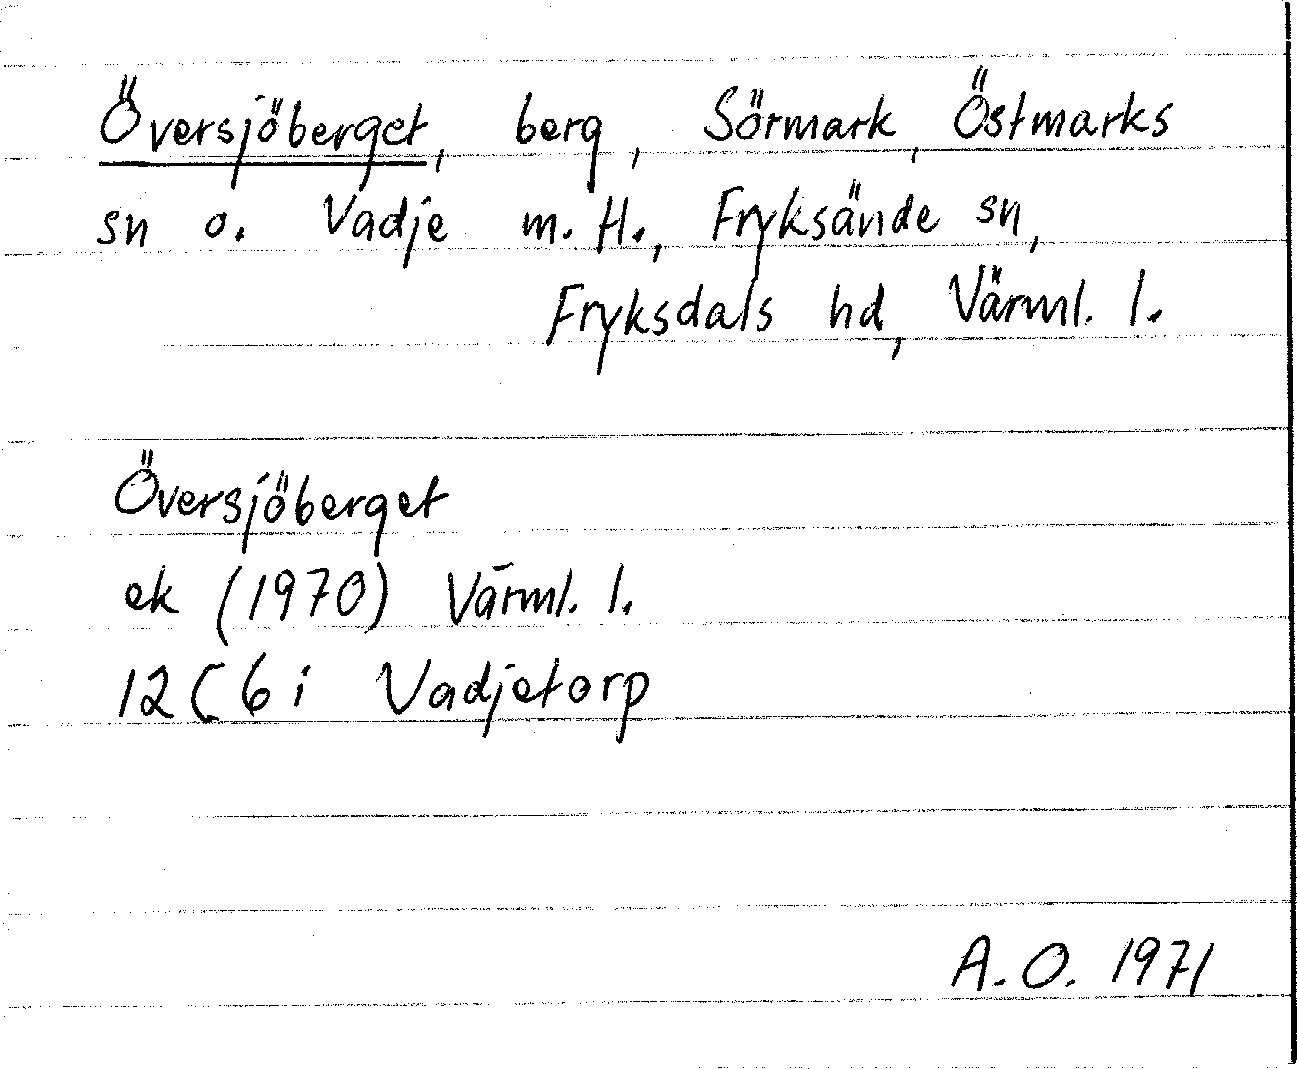 Översjöberget, berg, Sörmark, Östmarks
sn o. Vadje m. H., Fryksände sn,
Fryksdals hd, Värml. l.
Översjöberget
ek (1970) Värml. l.
12C6i Vadjetorp
A.O. 1971